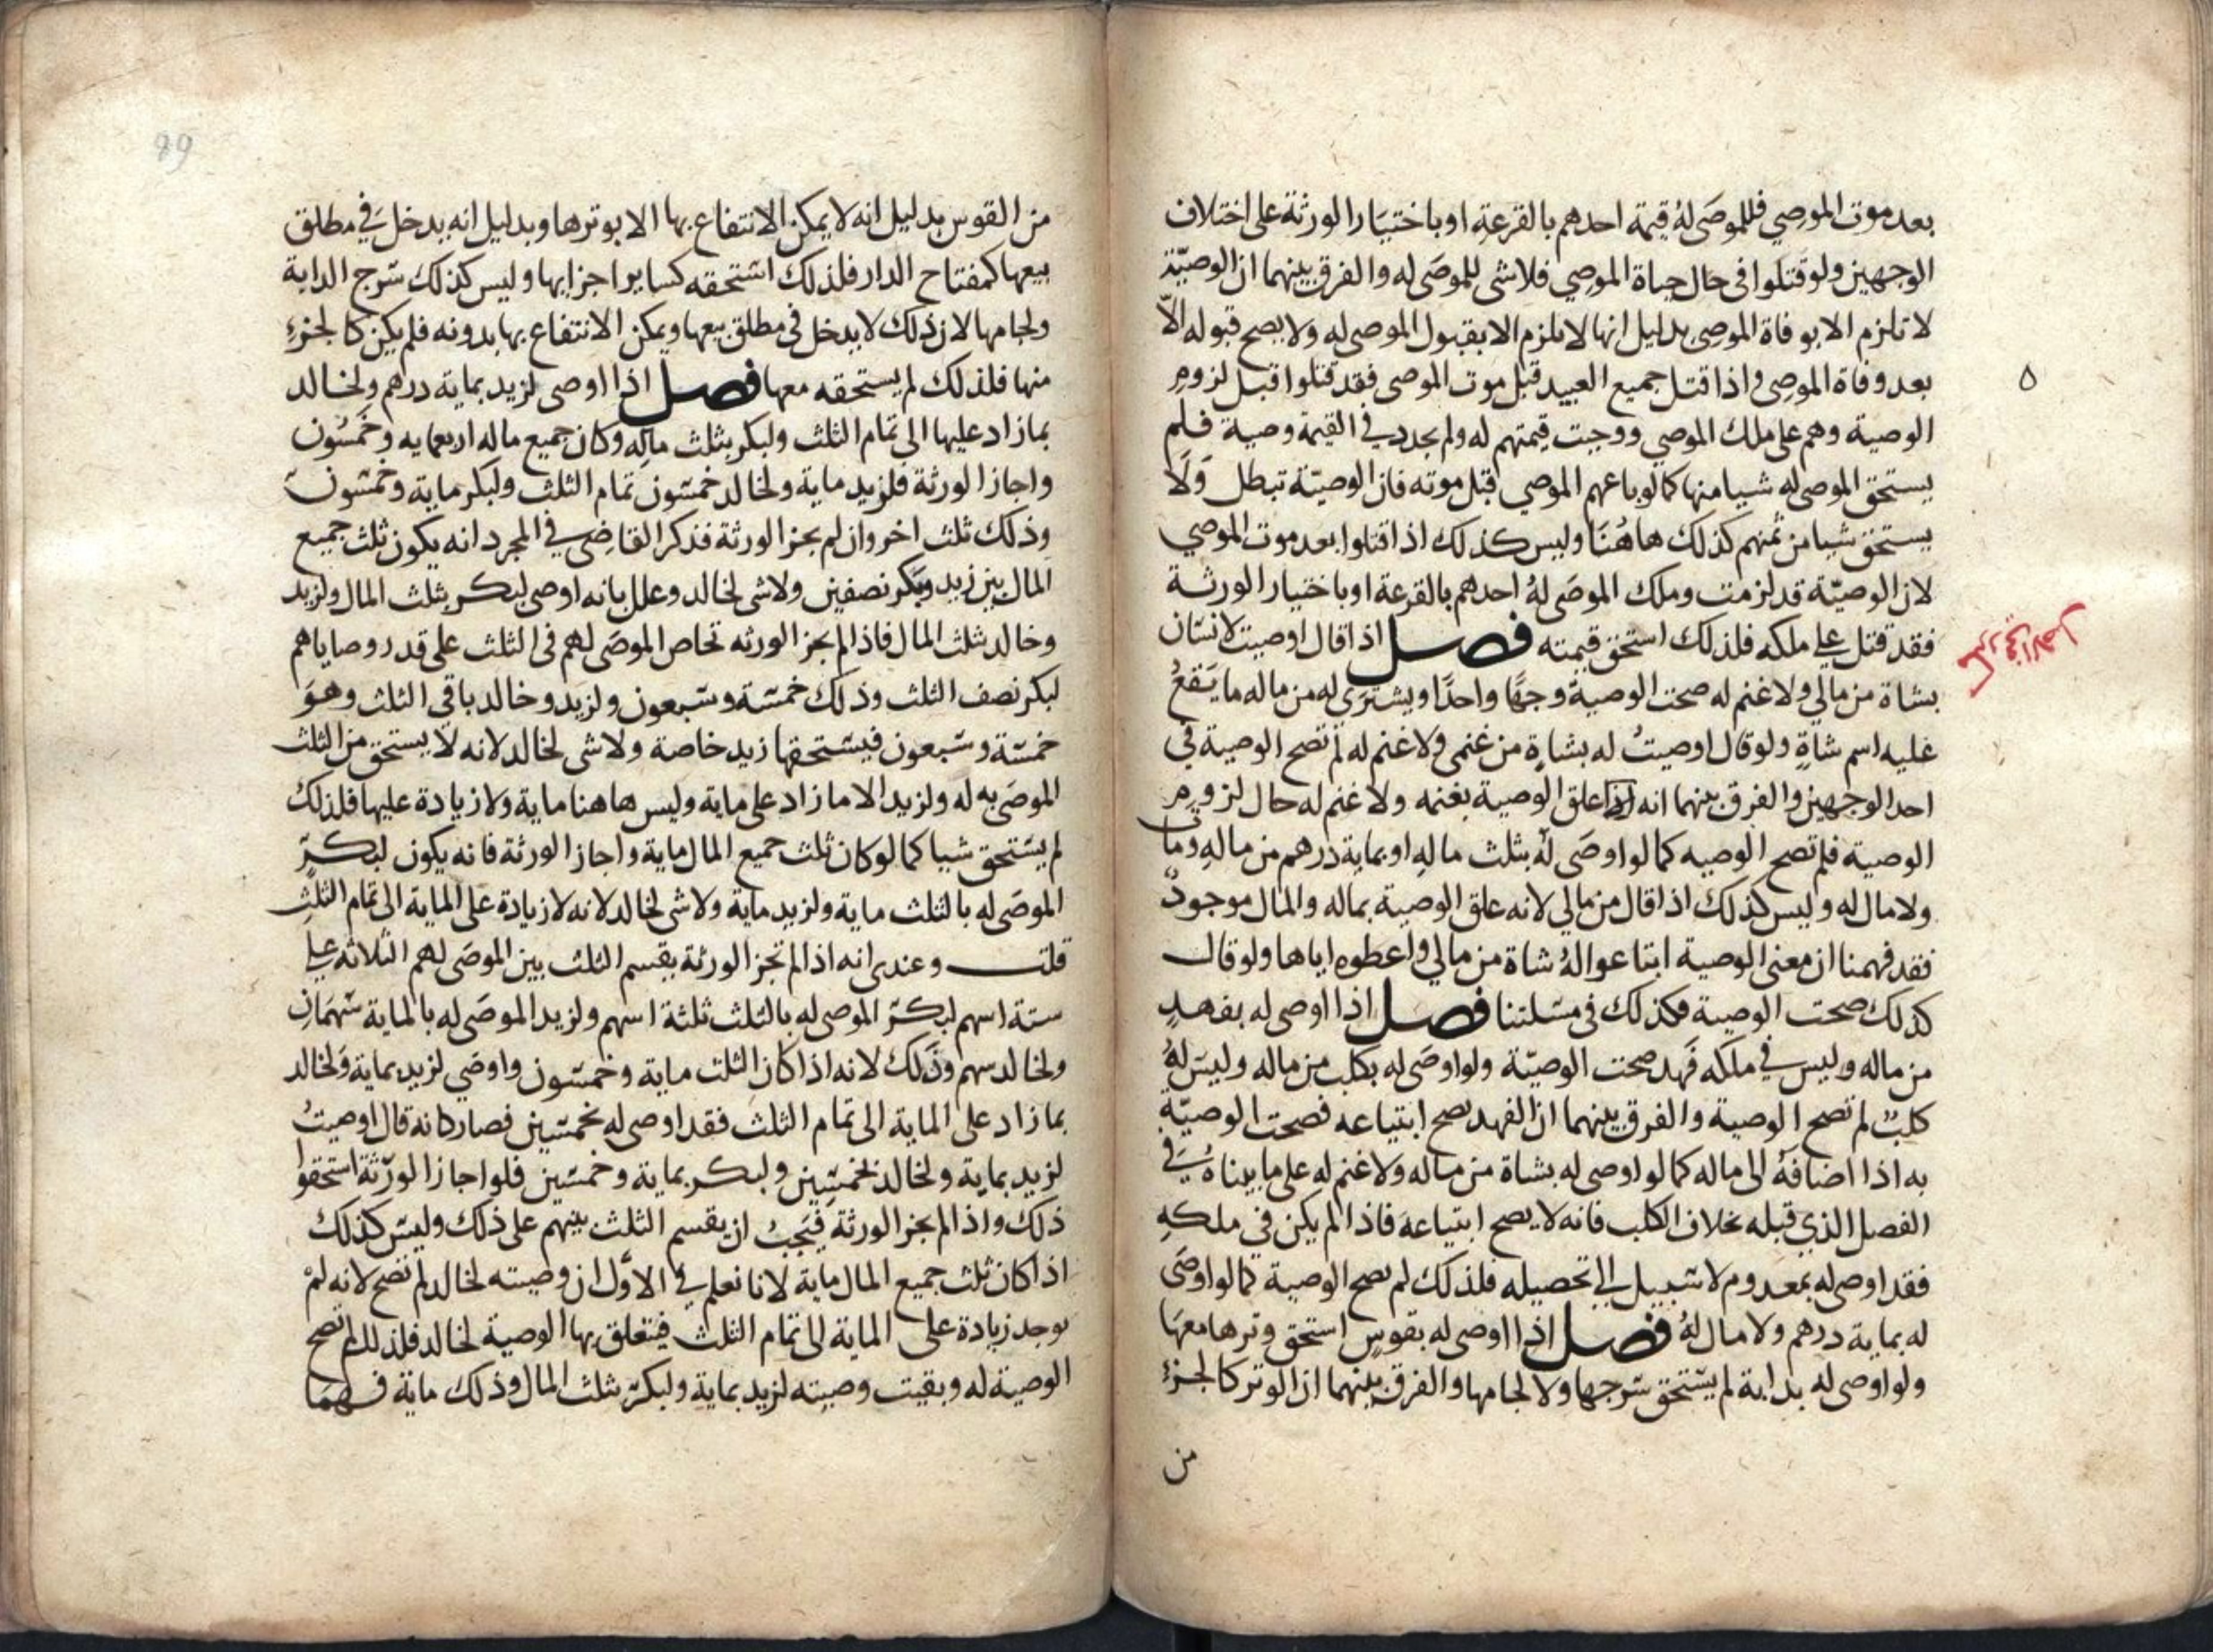 بعد موت الموصي فللموصَى لهُ قيمة احدهم بالقرعة او باختيَار الورثة على اختلاف
الوجهين ولو قتلوا في حال حياة الموصي فلا شى للموصَى له والفرق بينهما ان الوصيّة
لا تلزم الا بوفاة الموصِى بدليل انها لا تلزم الا بقبول الموصى له ولا يصح قبوله الّا
بعد وفاة الموصِى واذا قتل جميع العبيد قبل موت الموصى فقد قتلوا قبل لزومِ
الوصية وهم على ملك الموصي ووجبت قيمتهم له ولم يجدد في القيمة وصية فلم
يستحق الموصى له شيا منها كما لو باعهم الموصي قبل موته فان الوصيّة تبطل وَلَا
يستحق شيا من ثمنهم كذلك هاهُنَا وليس كذلك اذا قتلوا بعد موت الموصي
لان الوصيّة قد لزمت وملك الموصَى لهُ احدهم بالقرعة او باختيار الورثة
فقد قتل على ملكه فلذلك استحق قيمته فصل اذا قال اوصيت لانسَان
بشاة من مالي ولا غنم له صحت الوصية وجهًا واحدًا ويشترَى له من ماله ما يَقعُ
عليه اسم شاةٍ ولو قال اوصيتُ له بشاةٍ من غنمي ولا غنم له لم تصح الوصية في
احد الوجهين والفرق بينهما انه اذا علق الوصية بغنمه ولا غنم له حال لزومِ
الوصية فلم تصح الوصيه كما لو اوصَى لهُ بثلث مالهِ او بمايةِ درهم من مالهِ ومات
ولا مال له وليس كذلك اذا قال من مالي لانه علق الوصية بماله والمال موجودٌ
فقد فهمنا ان معنى الوصية ابتاعوا لهُ شاة من مالي واعطوه اياها ولو قال
كذلك صحت الوصية فكذلك في مسَلتنا فصل اذا اوصى له بفهدٍ
من ماله وليس في ملكه فَهد صحت الوصيّة ولو اوصَى له بكلب من ماله وليسَ لهُ
كلبٌ لم تصح الوصية والفرق بينهما ان الفهد يصح ابتياعه فصحت الوصيّة
به اذا اضافهُ الى ماله كما لو اوصى له بشاة من ماله ولا غنم له على ما بيناهُ في
الفصل الذي قبله بخلاف الكلب فانه لا يصح ابتياعهَ فاذا لم يكن في ملكهِ
فقد اوصى له بمعدوم لا سَبيل الى تحصيله فلذلك لم تصح الوصية كما لو اوصَى
له بماية درهم ولا مال لهُ فصل اذا اوصى له بقوسٍ استحق وترها معهَا
ولو اوصى له بدابة لم يسَتحق سَرجها ولا لجامها والفرق بينهما ان الوتر كالجزءِ
من
89
من القوس بدليل انه لا يمكن الانتفاع بها الا بوترها وبدليل انه يدخل في مطلق
بيعها كمفتاح الدار فلذلك استَحقه كساير اجزايها وليس كذلك سَرج الدابة
ولجامها لان ذلك لا يدخل في مطلق بيعها ويمكن الانتفاع بها بدونه فلم يكن كالجزءِ
منها فلذلك لم يستحقه معها فصل اذا اوصى لزيد بماية درهم ولخالد
بما زاد عليها الى تمام الثلث ولبكر بثلث مالِه وكان جميع ماله اربعمايه وخَمسُون
واجاز الورثة فلزيد ماية ولخالد خمسَون تمام الثلث ولبكر ماية وخمسَون
وذلك ثلث اخر وان لم يجز الورثة فذكر القاضي في المجرد انه يكون ثلث جميع
المال بين زيد وبكر نصفين ولا شى لخالد وعلل بانه اوصى لبكر بثلث المال ولزيد
وخالد بثلث المال فاذا لم يجز الورثه تحاص الموصَى لهم في الثلث على قدر وصاياهم
لبكر نصف الثلث وذلك خمسَة وسَبعون ولزيد وخالد باقي الثلث وهوَ
خمسَة وسَبعون فيسَتحقها زيد خاصة ولا شى لخالد لانه لا يستحق من الثلث
الموصَى به له ولزيد الا ما زاد على ماية وليس هاهنا ماية ولا زيادة عليها فلذلك
لم يسَتحق شيا كما لو كان ثلث جميع المال ماية واجاز الورثة فانه يكون لبكرٍ
الموصَى له بالثلث ماية ولزيد ماية ولا شى لخالد لانه لا زيادة على الماية الى تمام الثلثِ
قلت وعندى انه اذا لم تجز الورثة يقسم الثلث بين الموصَى لهم الثلاثه على
ستة اسهم لبكرٍ الموصى له بالثلث ثلثة اسهم ولزيد الموصَى له بالماية سَهمَانِ
ولخالد سهم وذَلك لانه اذا كان الثلث ماية وخمسَون واوصَي لزيد بماية ولخالد
بما زاد على الماية الى تمام الثلث فقد اوصى له بخمسَين فصار كانه قال اوصيتُ
لزيد بماية ولخالد بخمسِين ولبكر بماية وخمسَين فلو اجاز الورَثة استحقوا
ذلك واذا لم يجز الورثة فيَجبُ ان يقسم الثلث بينهم على ذلك وليسَ كذلك
اذا كان ثلث جميع المال ماية لانا نعلم في الاوَّل ان وصيته لخالد لم تصح لانه لمْ
يوجد زيادة على الماية الى تمام الثلث فيتعلق بها الوصية لخالد فلذلك لم تصح
الوصية له وبقيت وصيته لزيد بماية ولبكرٍ بثلث المال وذلك ماية فهمَا